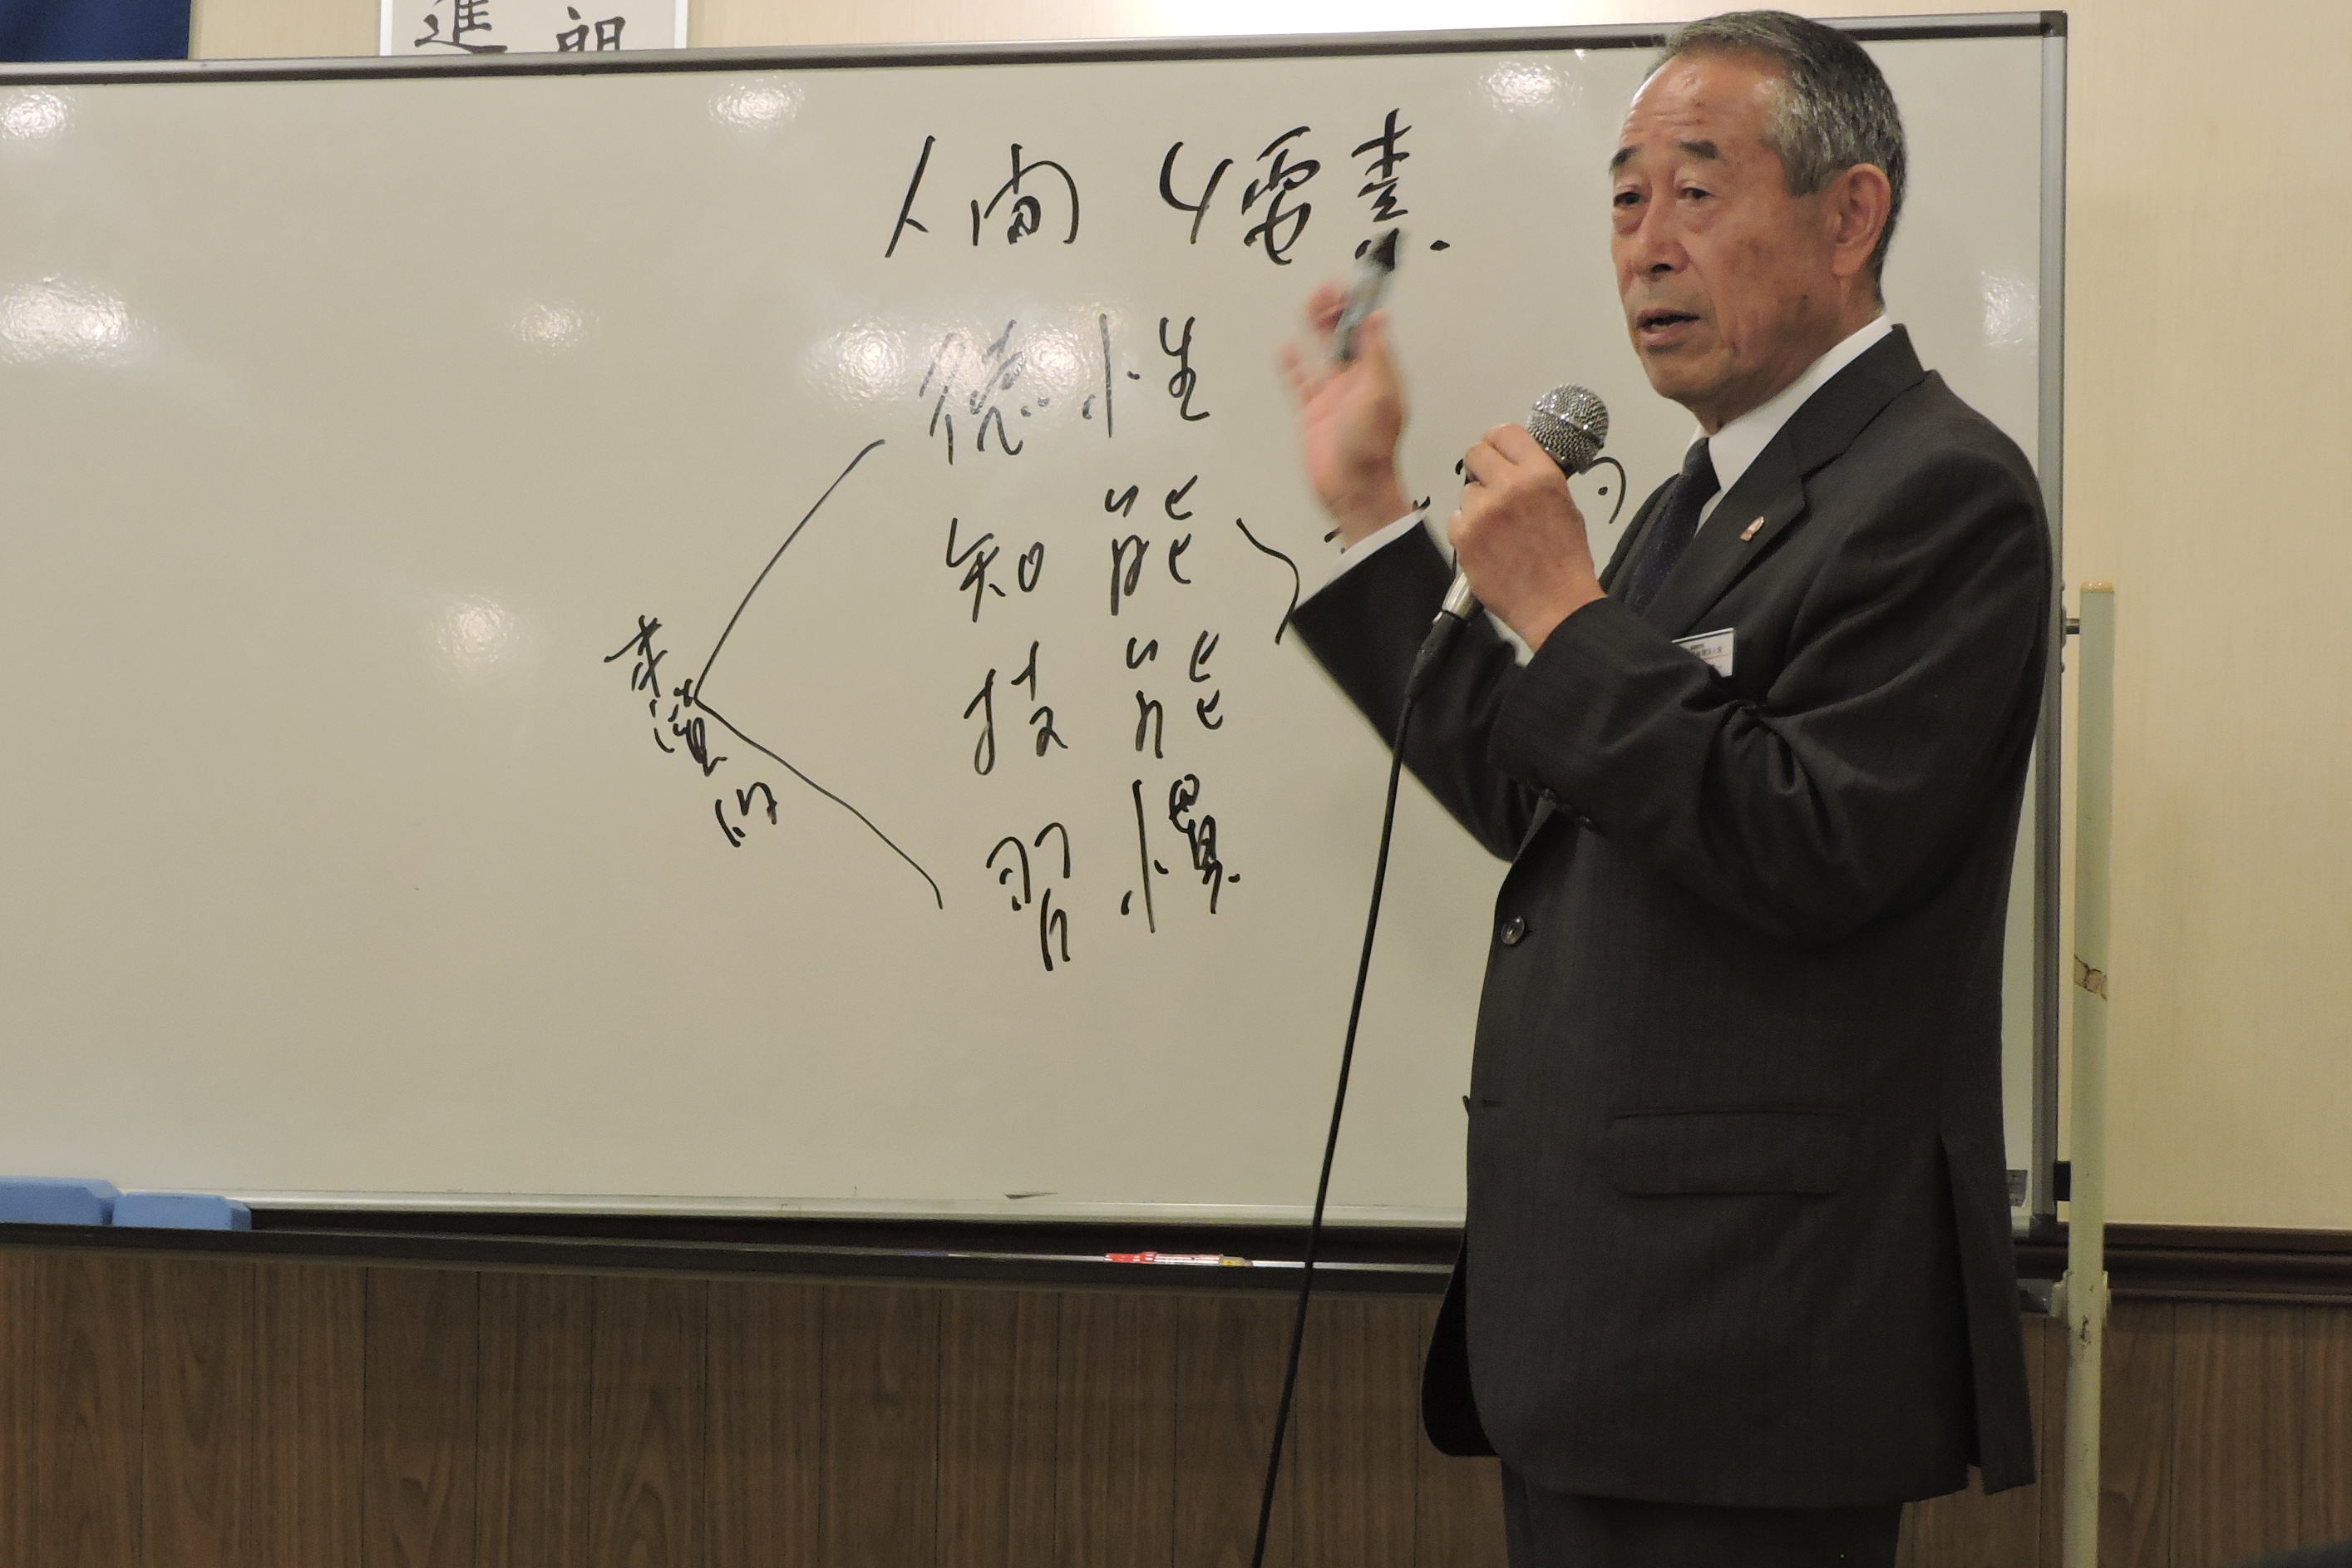 進 朗
人間 4要素
徳性
知能
技能
習慣
本質的
的